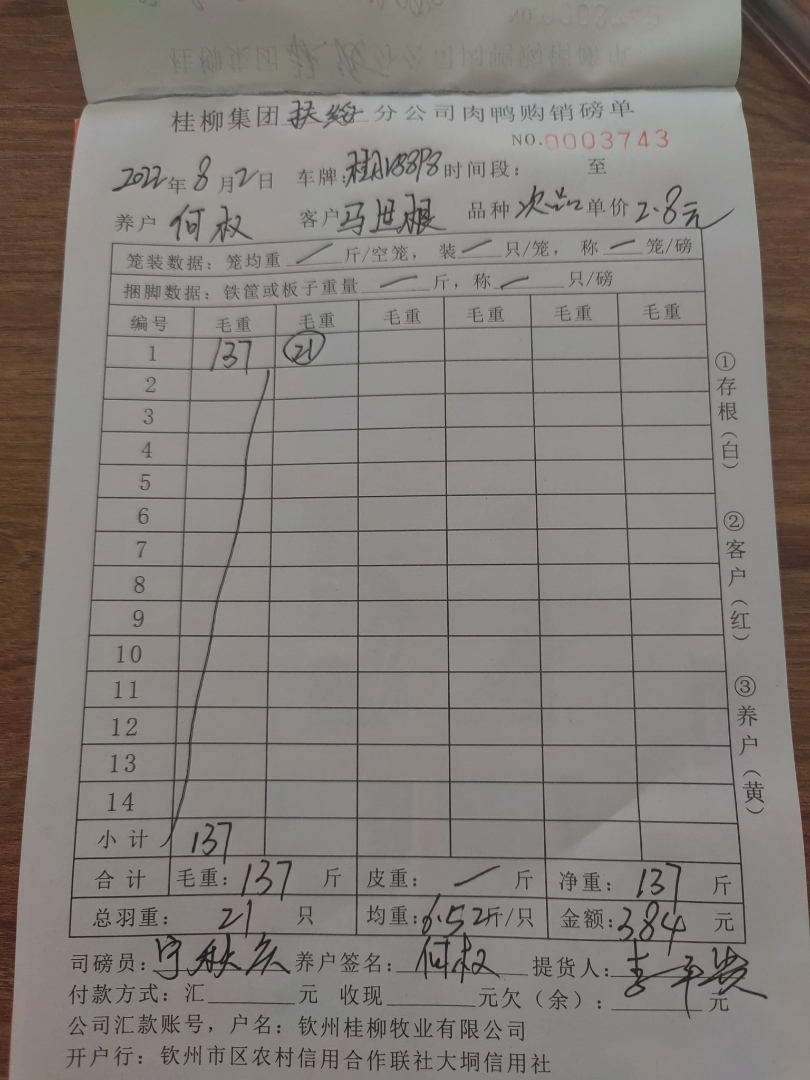 桂柳集团扶绥分公司肉鸭购销磅单
NO.0003743
2022年8月2日 车牌: 时间段: 至
养户 何权 客户 马世根 品种 次品 单价 2.8元
笼装数据:笼均重 一 斤/空笼,装 一 只/笼,称 一 笼/磅
捆脚数据:铁筐或板子重量 一 斤,称 一 只/磅
编号 毛重 毛重 毛重 毛重 毛重 毛重
1 137 21
2
3
4
5
6
7
8
9
10
11
12
13
14
小计 137
合计 毛重:137 斤 皮重: 一 斤 净重:137 斤
总羽重: 21 只 均重:6.52斤/只 金额:384 元
司磅员: 养户签名: 何权 提货人:
付款方式:汇 元 收现 元欠(余): 元
公司汇款账号,户名:钦州桂柳牧业有限公司
开户行:钦州市区农村信用合作联社大垌信用社
①存根(白)
②客户(红)
③养户(黄)